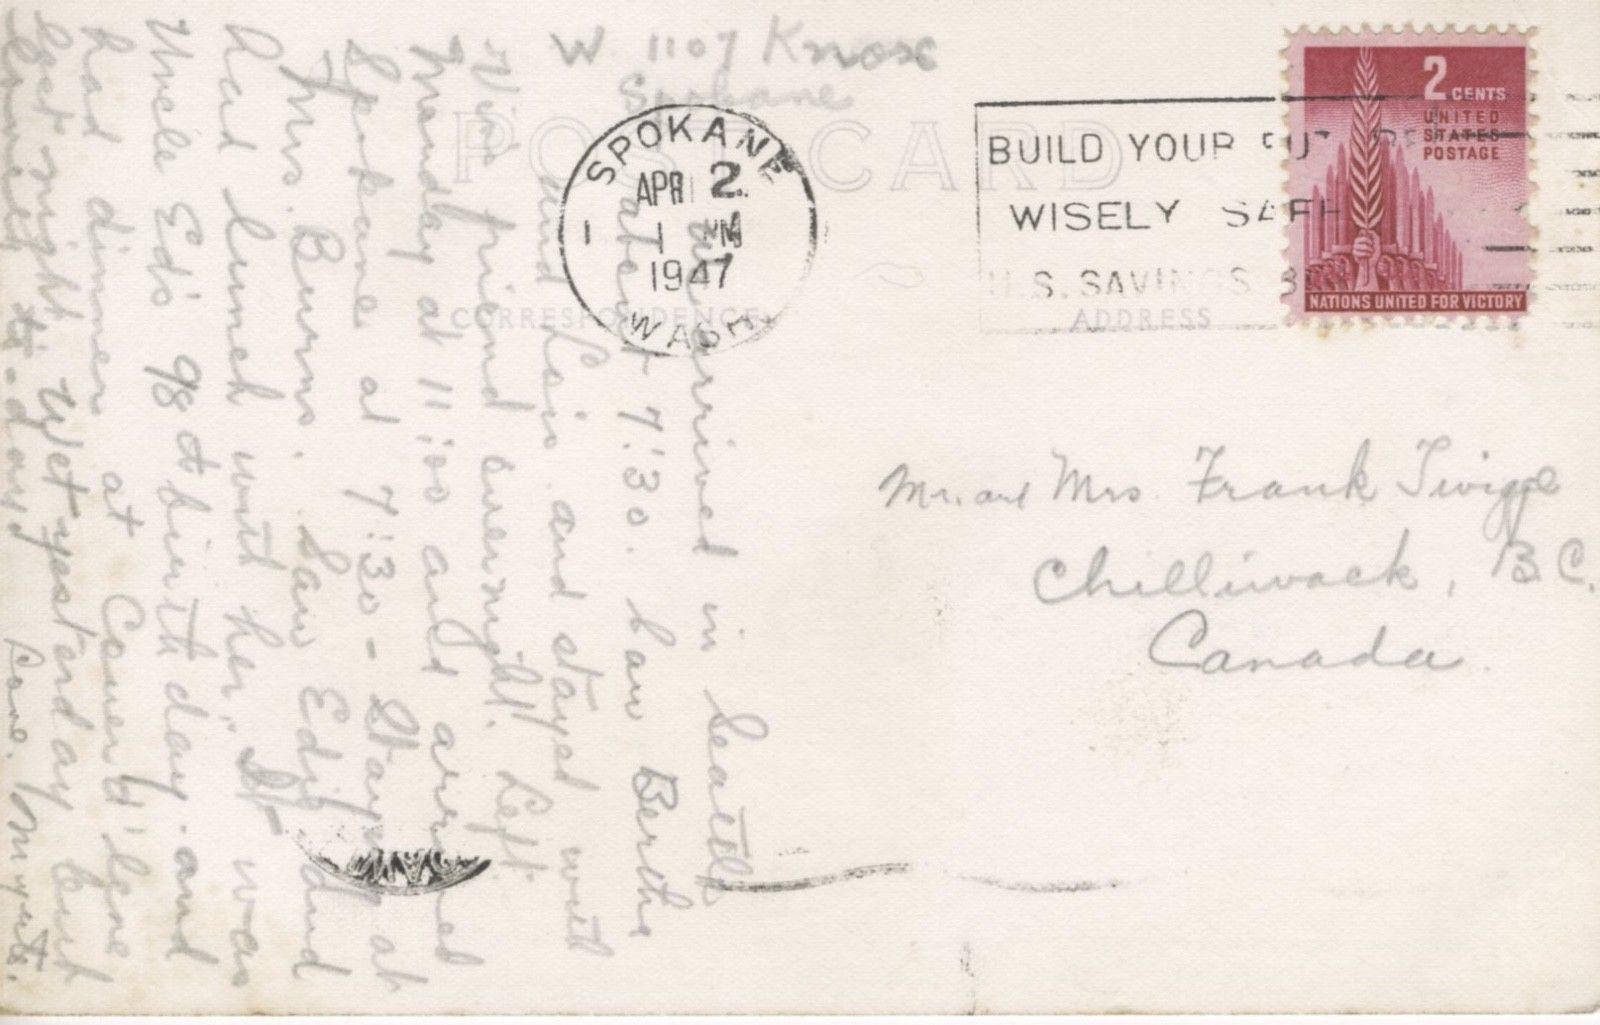 W 1107 Knox
Spokane
POST CARD
CORRESPONDENCE
ADDRESS
SPOKANE
WASH.
APR 2
1 PM
1947
1
BUILD YOUR FUTURE
WISELY SAFELY
U.S. SAVINGS BONDS
2 CENTS
UNITED
STATES
POSTAGE
NATIONS UNITED FOR VICTORY
Mr. and Mrs. Frank Twigge
Chilliwack, B.C.
Canada
arrived in Seattle
at 7:30. Saw Bertha
and Lois and stayed with
Vi's friend overnight. Left
Monday at 11:00 and arrived
Spokane at 7:30 - Stayed at
Mrs. Burns. Saw Edij and
had lunch with her. It was
Uncle Ed's 98th birthday and
had dinner at Couer d'lene
last night. Wet yesterday but
to-day
Love. Myrtle.